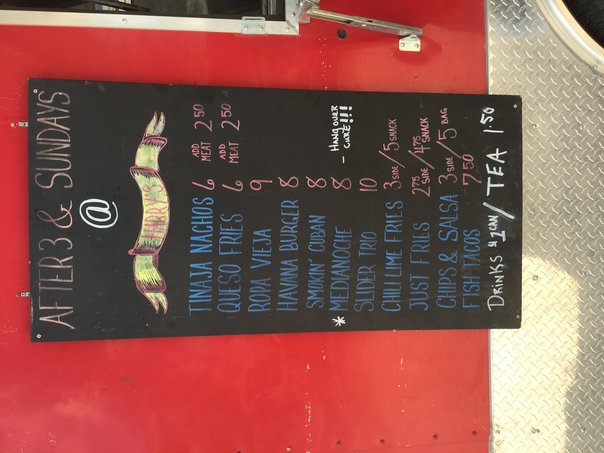 AFTER 3 & SUNDAYS
@
HARRY'S
TINAJA NACHOS 6 ADD MEAT 2 50
QUESO FRIES 6 ADD MEAT 2 50
ROPA VIEJA 9
HAVANA BURGER 8
SMOKIN' CUBAN 8
* MEDIANOCHE 8 - HANGOVER CURE!!!
SLIDER TRIO 10
CHILI LIME FRIES 3 SIDE/5 SNACK
JUST FRIES 2 75 SIDE/4 75 SNACK
CHIPS & SALSA 3 SIDE/5 BAG
FISH TACOS 7 50
DRINKS $1 CAN/TEA 1 50